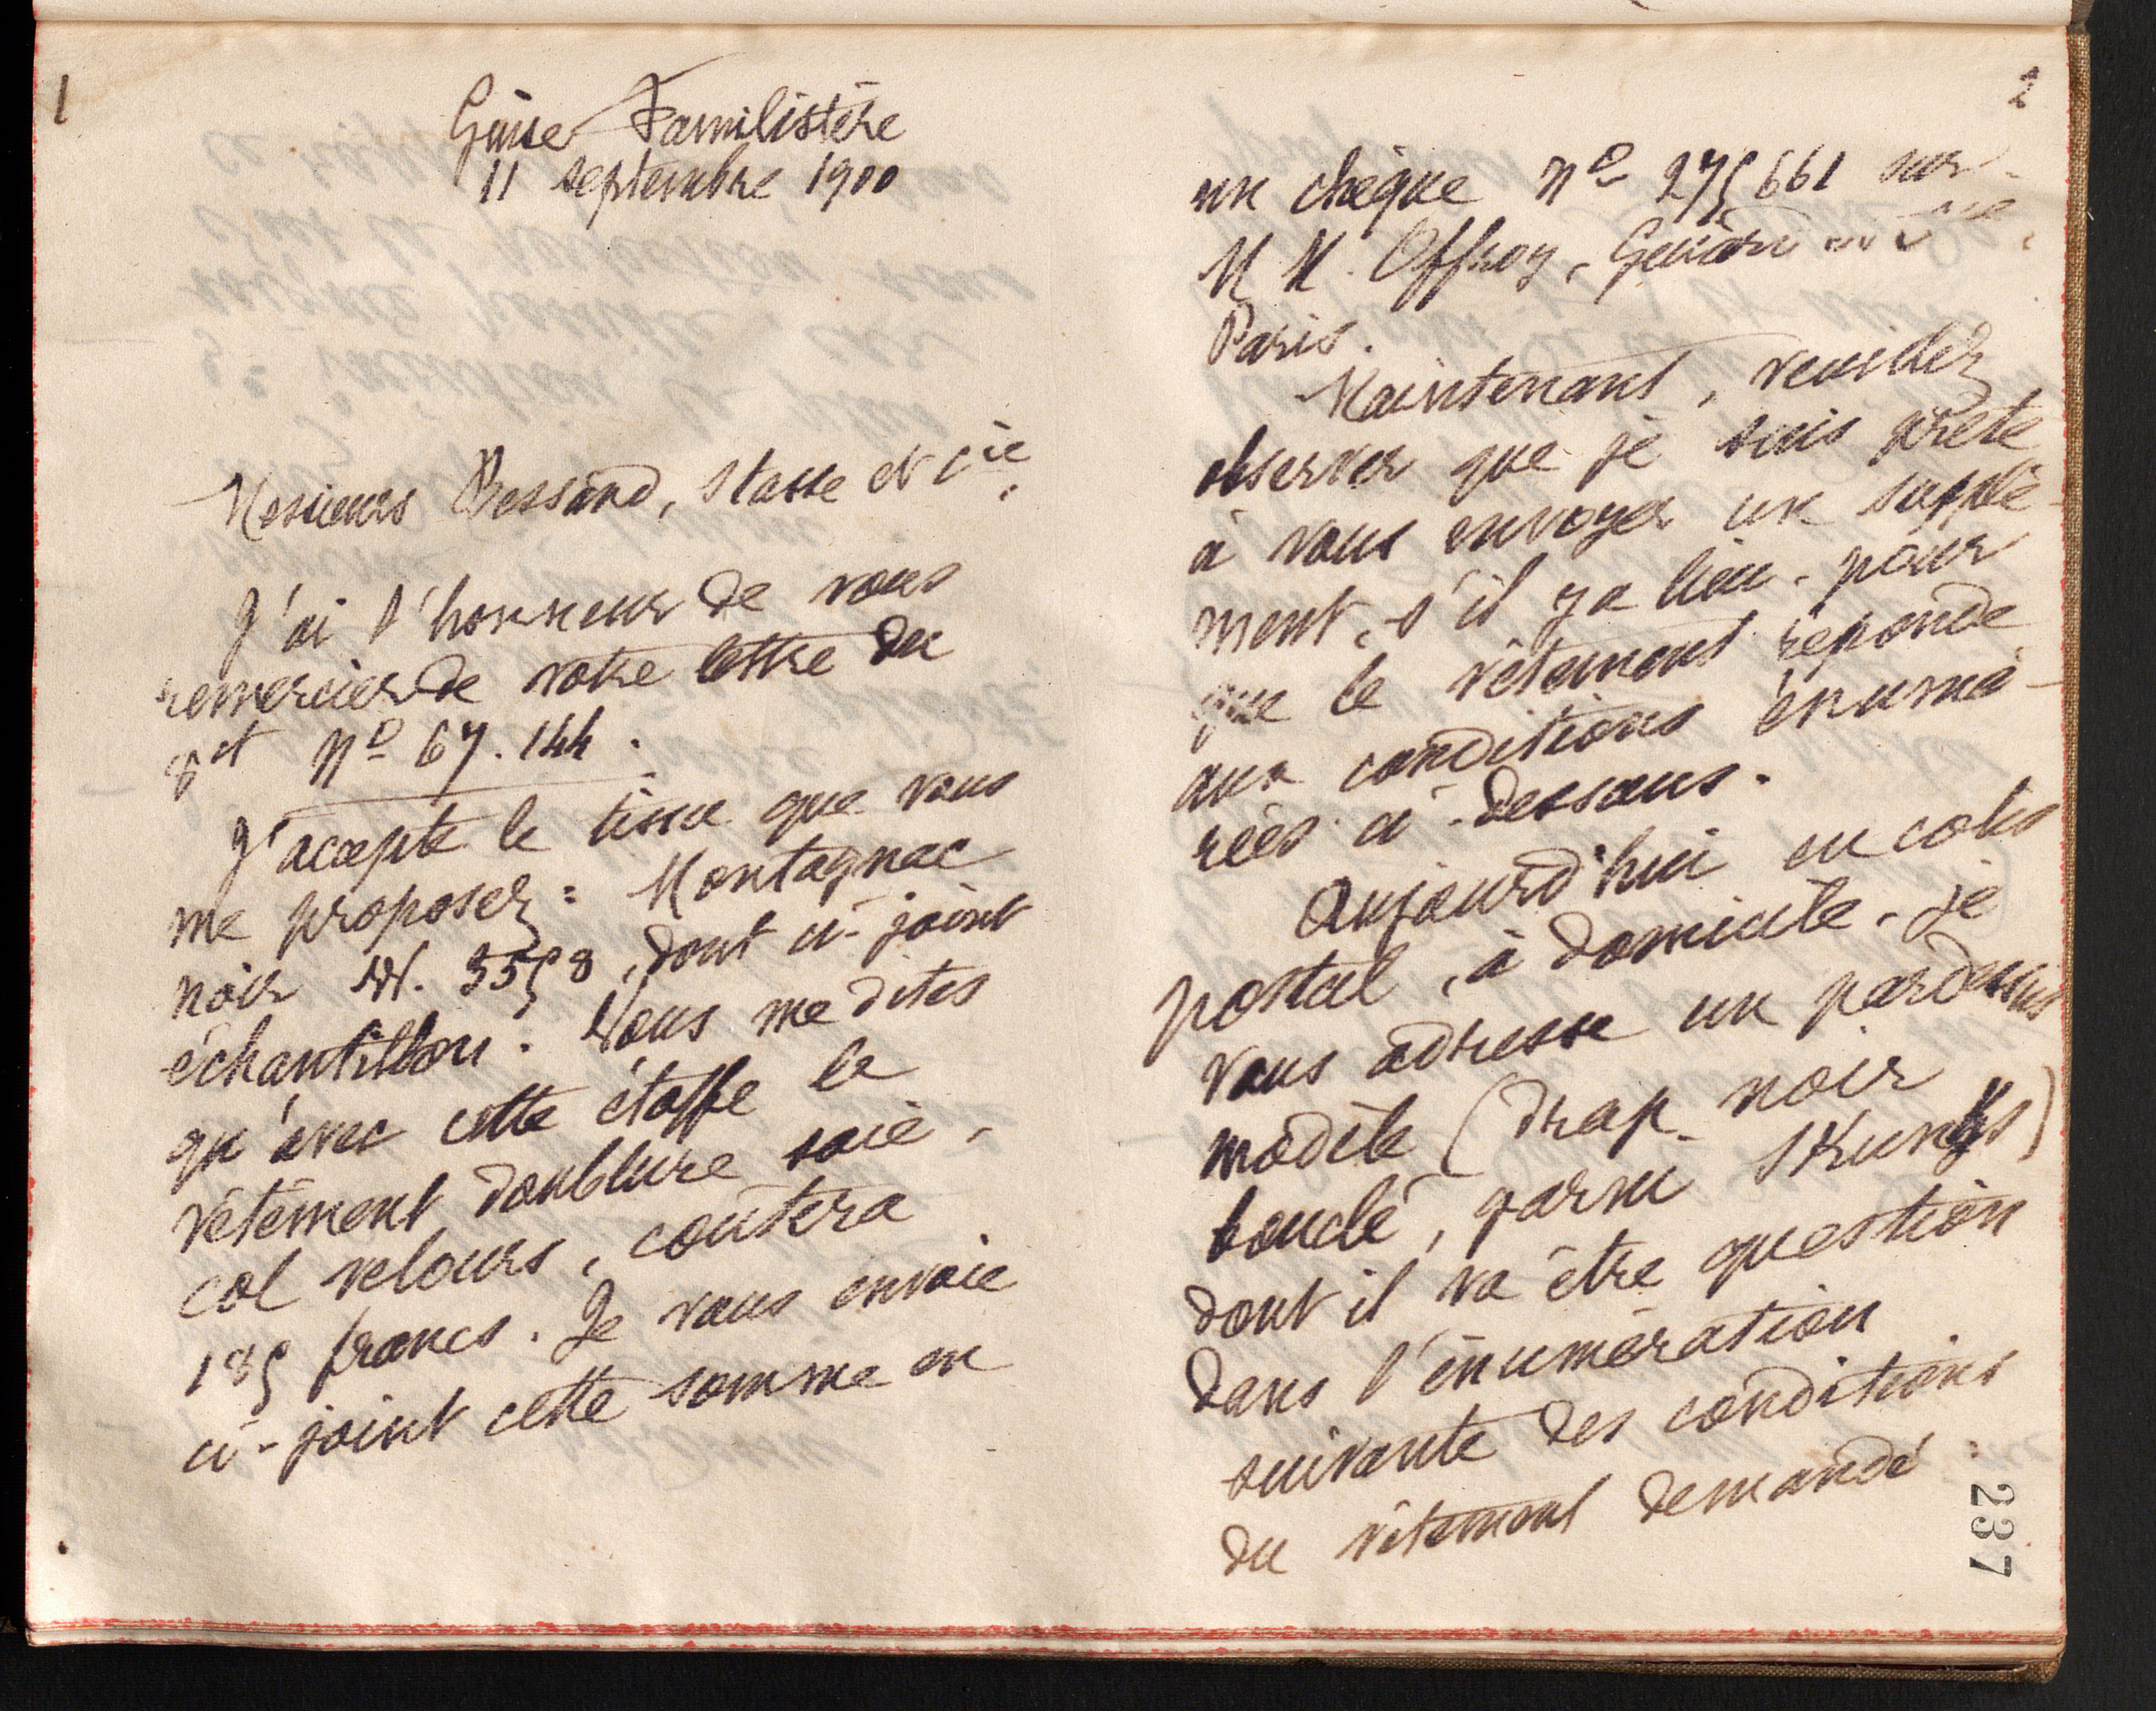 1
Guise Familistère
11 septembre 1900
Messieurs Bessand, Stasse et Cie,
J'ai l'honneur de vous
remercier de votre lettre du
8 ct No 67.144.
J'accepte le tissu que vous
me proposez : Montagnac
noir N. 3558, dont ci-joint
échantillon. Vous me dites
qu'avec cette étoffe le
vêtement doublure soie,
col velours, coûtera
185 francs. Je vous envoie
ci-joint cette somme en
2
un chèque No 275661 sur
M M. Offroy, Guiard
Paris.
Maintenant, veuillez
observer que je suis prête
à vous envoyer un supplé-
ment, s'il y a lieu, pour
que le vêtement réponde
aux conditions énumé-
rées ci-dessous.
Aujourd'hui en colis
postal, à domicile, je
vous adresse un pardessus
modèle (drap noir
bouclé, garni skungs)
dont il va être question
dans l'énumération
suivante des conditions
du vêtement demandé :
237